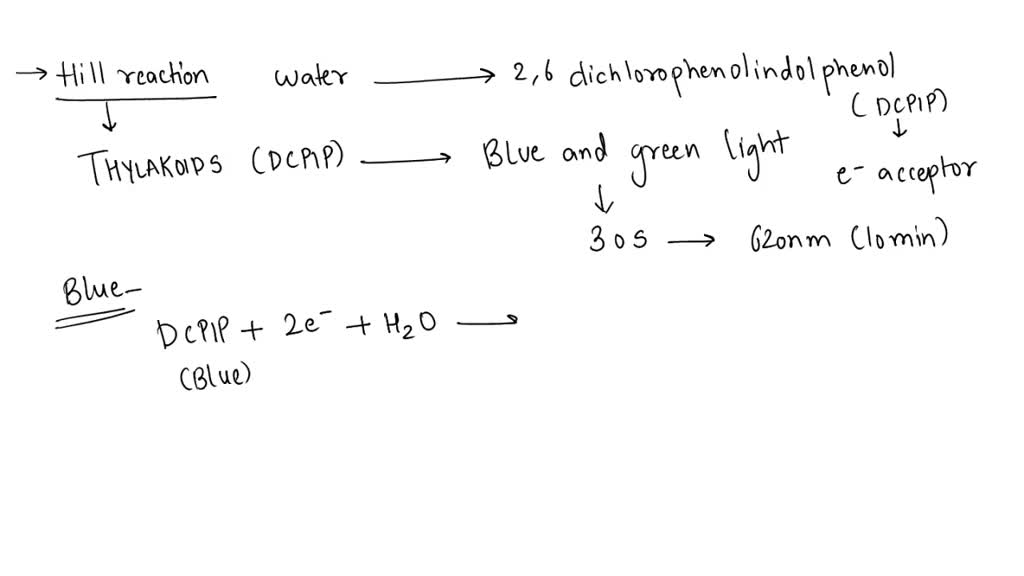 → Hill reaction water → 2,6 dichlorophenolindolphenol
(DCPIP)
↓
↓
THYLAKOIDS (DCPIP) → Blue and green light
e⁻ acceptor
↓
30s → 620nm (10min)
Blue-
DCPIP + 2e⁻ + H₂O →
(Blue)